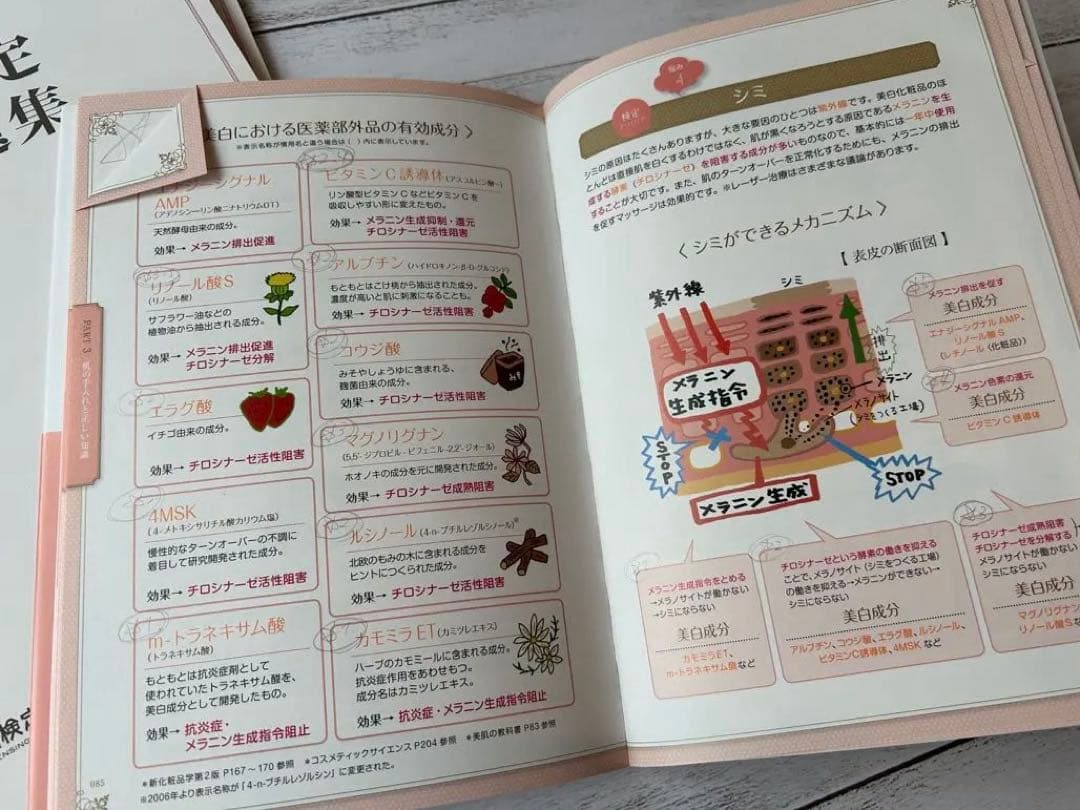 定
集
検定
美白における医薬部外品の有効成分 〉
※表示名称が慣用名と違う場合は( )内に表示しています。
ナジーシグナル
AMP
(アデノシン一リン酸二ナトリウムOT)
天然酵母由来の成分。
効果→ メラニン排出促進
リノール酸S
(リノール酸)
サフラワー油などの
植物油から抽出される成分。
効果→ メラニン排出促進
チロシナーゼ分解
エラグ酸
イチゴ由来の成分。
効果→ チロシナーゼ活性阻害
4MSK
(4-メトキシサリチル酸カリウム塩)
慢性的なターンオーバーの不調に
着目して研究開発された成分。
効果→ チロシナーゼ活性阻害
m-トラネキサム酸
(トラネキサム酸)
もともとは抗炎症剤として
使われていたトラネキサム酸を、
美白成分として開発したもの。
効果→ 抗炎症・
メラニン生成指令阻止
ビタミンC誘導体(アスコルビン酸〜)
リン酸型ビタミンCなどビタミンCを
吸収しやすい形に変えたもの。
効果→ メラニン生成抑制・還元
チロシナーゼ活性阻害
アルブチン(ハイドロキノン-β-D-グルコシド)
もともとはこけ桃から抽出された成分。
濃度が高いと肌に刺激になることも。
効果→ チロシナーゼ活性阻害
コウジ酸
みそやしょうゆに含まれる、
麹菌由来の成分。
みそ
効果→ チロシナーゼ活性阻害
マグノリグナン
(5,5'-ジプロピル-ビフェニル-2,2'-ジオール)
ホオノキの成分を元に開発された成分。
効果→ チロシナーゼ成熟阻害
ルシノール(4-n-ブチルレゾルシノール)※
北欧のもみの木に含まれる成分を
ヒントにつくられた成分。
効果→ チロシナーゼ活性阻害
カモミラET(カミツレエキス)
ハーブのカモミールに含まれる成分。
抗炎症作用をあわせもつ。
成分名はカミツレエキス。
効果→ 抗炎症・メラニン生成指令阻止
*新化粧品学第2版 P167〜170 参照 *コスメティックサイエンス P204 参照 *美肌の教科書 P83 参照
※2006年より表示名称が「4-n-ブチルレゾルシン」に変更された。
085
PART 3 肌の手入れと正しい知識
悩み
1
検定
シミ
シミの原因はたくさんありますが、大きな要因のひとつは紫外線です。美白化粧品のほ
とんどは直接肌を白くするわけではなく、肌が黒くなろうとする原因であるメラニンを生
成する酵素(チロシナーゼ)を阻害する成分が多いものなので、基本的には一年中使用
することが大切です。また、肌のターンオーバーを正常化するためにも、メラニンの排出
を促すマッサージは効果的です。※レーザー治療はさまざまな議論があります。
〈 シミができるメカニズム 〉
【 表皮の断面図 】
紫外線
シミ
メラニン
生成指令
STOP
メラニン生成
STOP
排出
メラニン
メラノサイト
(シミをつくる工場)
メラニン排出を促す
美白成分
エナジーシグナルAMP、
リノール酸S
(レチノール(化粧品))
メラニン色素の還元
美白成分
ビタミンC誘導体
メラニン生成指令をとめる
→メラノサイトが働かない
→シミにならない
美白成分
カモミラET、
m-トラネキサム酸など
チロシナーゼという酵素の働きを抑える
ことで、メラノサイト(シミをつくる工場)
の働きを抑える→メラニンができない→
シミにならない
美白成分
アルブチン、コウジ酸、エラグ酸、ルシノール、
ビタミンC誘導体、4MSKなど
チロシナーゼ成熟阻害
チロシナーゼを分解する
メラノサイトが働かない
シミにならない
美白成分
マグノリグナン
リノール酸Sな